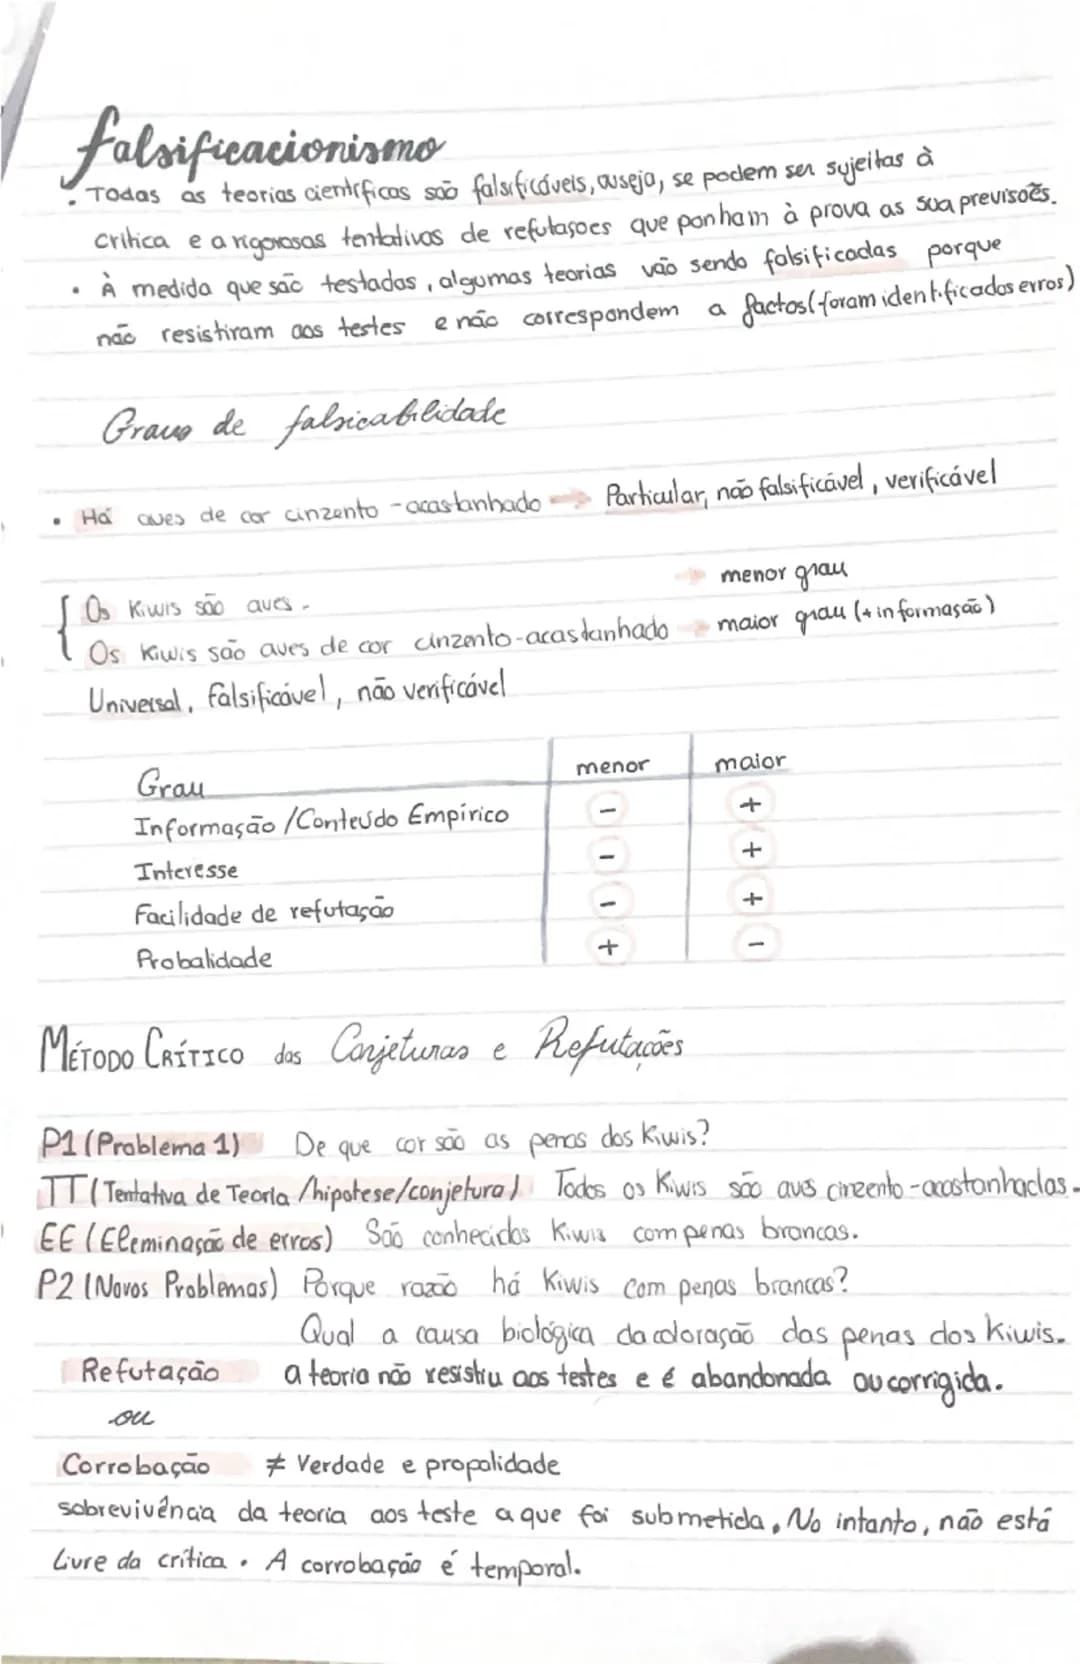 falsificacionismo
. Todas as teorias cientificas são falsificáveis, ouseja, se podem ser sujeitas à
crítica e a rigorosas tentativas de refutaçoes que ponham à prova as sua previsoẽs.
• À medida que são testadas, algumas teorias vão sendo falsificadas porque
não resistiram aos testes e não correspondem a factos (foram identificados erros)
Graus de falsicabilidade
• Há aves de cor cinzento-acastanhado → Particular, não falsificável, verificável
Os Kiwis são aves. → menor grau
Os Kiwis são aves de cor cinzento-acastanhado → maior grau (+ informação)
Universal, falsificável, não verificável
Grau menor maior
Informação/Conteudo Empírico - +
Interesse - +
Facilidade de refutação - +
Probalidade + -
MÉTODO CRÍTICO das Conjeturas e Refutações
P1 (Problema 1) De que cor são as penas dos Kiwis?
TT (Tentativa de Teoria/hipotese/conjetura) Todos os Kiwis são aves cinzento-acastanhadas.
EE (Eleminação de erros) São conhecidos Kiwis com penas brancas.
P2 (Novos Problemas) Porque razão há Kiwis com penas brancas?
Qual a causa biológica da coloração das penas dos Kiwis.
Refutação a teoria não resistiu aos testes e é abandonada ou corrigida.
ou
Corrobação ≠ Verdade e propalidade
sobrevivência da teoria aos teste a que foi submetida. No intanto, não está
livre da crítica. A corrobação é temporal.